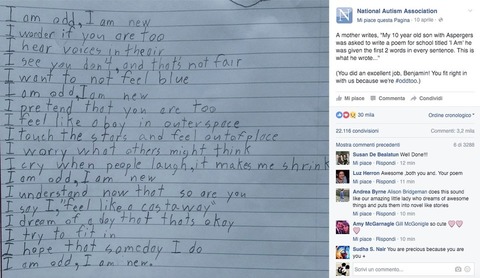 I am odd, I am new
I wonder if you are too
I hear voices in the air
I see you don't, and that's not fair
I want to not feel blue
I am odd, I am new
I pretend that you are too
I feel like a boy in outerspace
I touch the stars and feel out of place
I worry what others might think
I cry when people laugh, it makes me shrink
I am odd, I am new
I understand now that so are you
I say I, "feel like a castaway"
I dream of a day that thats okay
I try to fit in
I hope that someday I do
I am odd, I am new.
National Autism Association
Mi piace questa Pagina · 10 aprile ·
A mother writes, "My 10 year old son with Aspergers was asked to write a poem for school titled 'I Am' he was given the first 2 words in every sentence. This is what he wrote..."
(You did an excellent job, Benjamin! You fit right in with us because we're #oddtoo.)
Mi piace Commenta Condividi
30 mila
Ordine cronologico
22.116 condivisioni
Commenti: 3,2 mila
Mostra commenti precedenti
6 di 3288
Susan De Bealatun Well Done!!!
Mi piace · Rispondi · 11 min
Luz Herron Awesome ,both you and. Your poem
Mi piace · Rispondi · 12 min
Andrea Byrne Alison Bridgeman does this sound like our amazing little lady who dreams of awesome things and puts them into novel like stories
Mi piace · Rispondi · 10 min
Amy McGarnagle Gill McGonigle so cute
Mi piace · Rispondi · 12 min
Sudha S. Nair You are precious because you are you
Scrivi un commento...